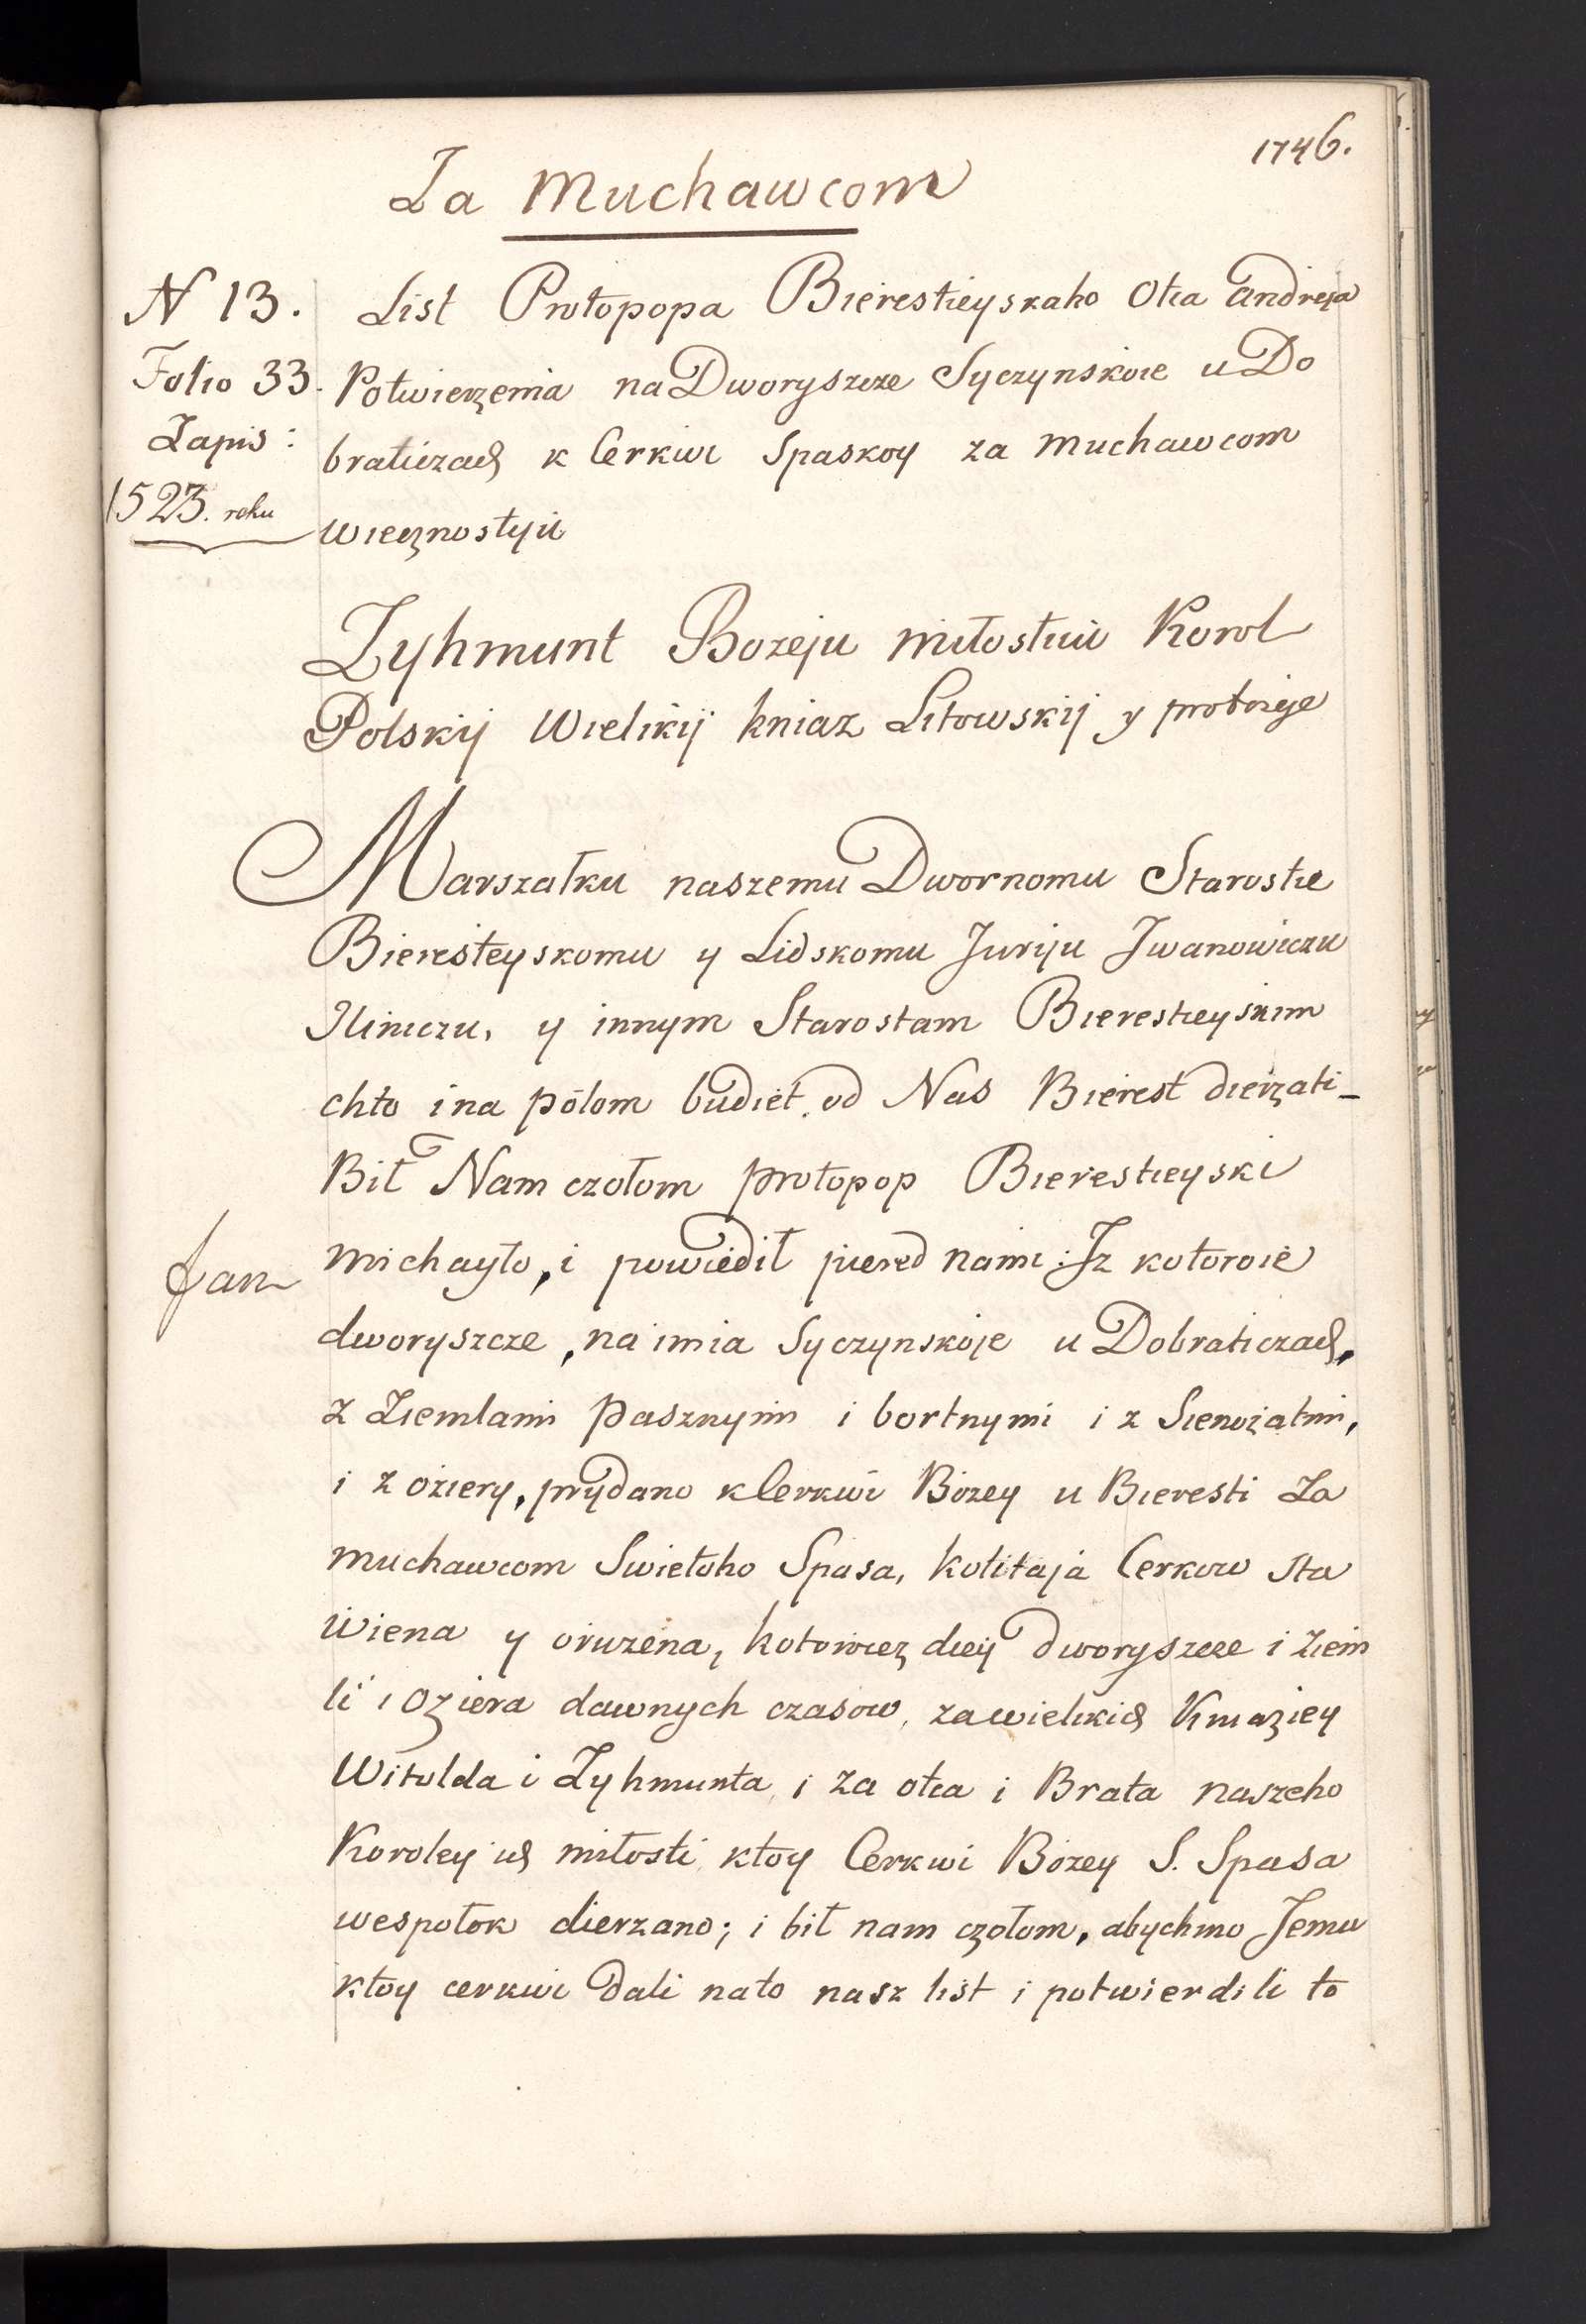 1746.
Za Muchawcom
N 13.
Folio 33.
Zapis:
1523. roku
List Protopopa Bierestieyskaho Otca Andreja
Potwierzenia na Dworyszcze Syczynskoie u Do
braticzach k Cerkwi Spaskoy za Muchawcom
wiecznostyu
Zyhmunt Bozeju miłostiu Korol
Polskij Wielikij kniaz Litowskij y protczije
Marszałku naszemu Dwornomu Starostie
Bieresteyskomu y Lidskomu Juriju Jwanowiczu
Jliniczu, y innym Starostam Bierestieyskim
chto i na potom budiet od Nas Bierest dierzati_
Bił Nam czołom protopop Bierestieyski
Michayło, i powiedił piered nami: Jz kotoroie
dworyszcze, na imia Syczynskoje u Dobraticzach,
z Ziemlami pasznymi i bortnymi i z Sienożatmi,
i z oziery, prydano k Cerkwi Bożey u Bieresti Za
Muchawcom Swietoho Spasa, kolitaja Cerkow Sta
wiena y oruzena, kotoroiez diey dworyszcze i ziem
li i oziera dawnych czasow, za wielikich Kniaziey
Witolda i Zyhmunta i za otca i Brata naszeho
Koroley ich miłosti ktoy Cerkwi Bożey S. Spasa
wespołok dierzano; i bił nam czołom, abychmo Jemu
ktoy cerkwi dali nato nasz list i potwierdili to